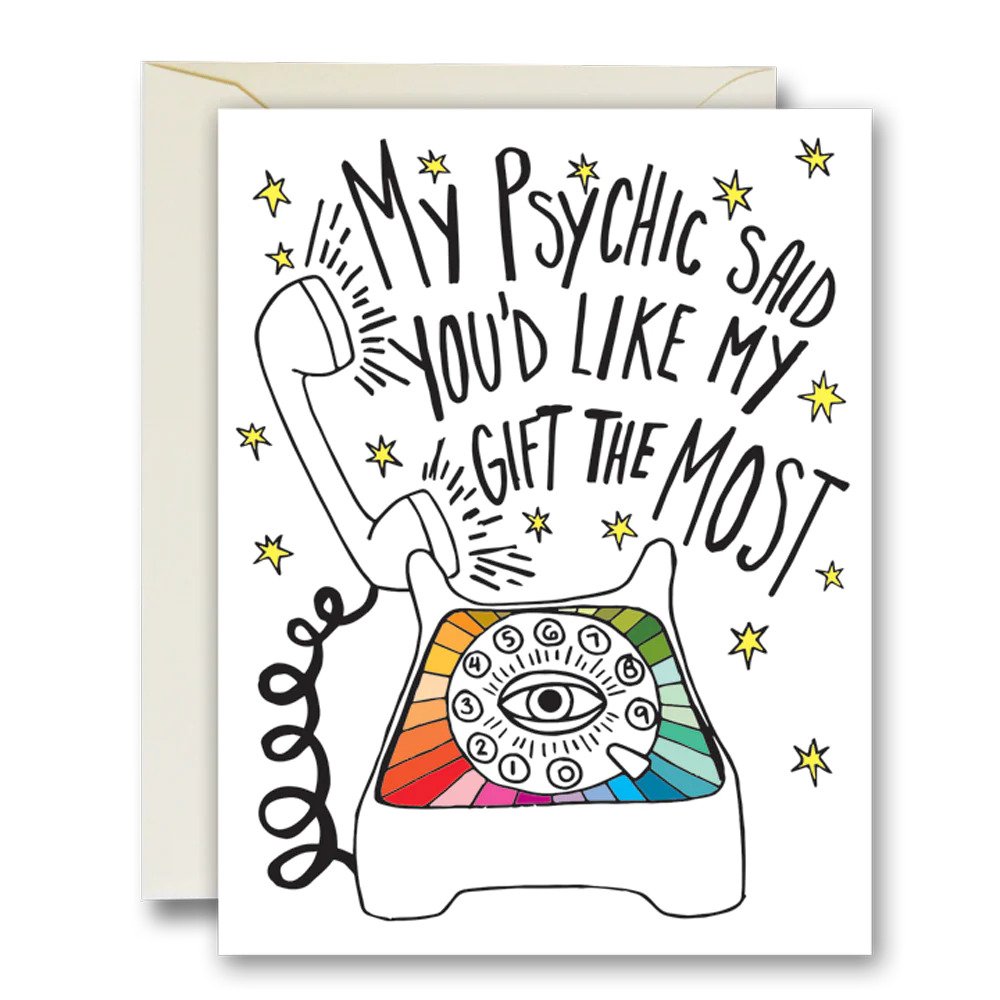 My Psychic said
you'd like my
gift the most
5 6 7
4 8
3 9
2
1 0